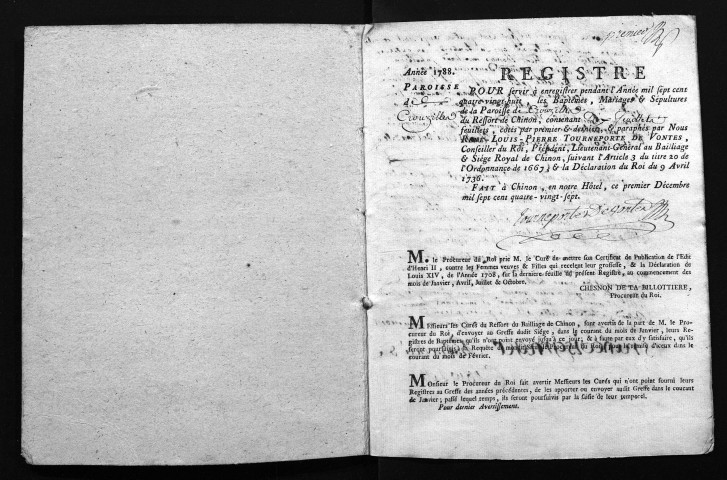 premier
Année 1788.
REGISTRE
PAROISSE
de
Crouzilles
POUR servir à enregistrer pendant l'Année mil sept cent
quatre-vingt-huit, les Baptêmes, Mariages & Sépultures
de la Paroisse de Crouzilles
du Ressort de Chinon, contenant
feuillets, cotés par premier & dernier, & paraphés par Nous
RENÉ-LOUIS-PIERRE TOURNEPORTE DE VONTES,
Conseiller du Roi, Président, Lieutenant-Général au Bailliage
& Siége Royal de Chinon, suivant l'Article 3 du titre 20 de
l'Ordonnance de 1667, & la Déclaration du Roi du 9 Avril
1736.
FAIT à Chinon, en notre Hôtel, ce premier Décembre
mil sept cent quatre-vingt-sept.
Tourneporte De Vontes
M. le Procureur du Roi prie M. le Curé de mettre son Certificat de Publication de l'Edit
d'Henri II, contre les Femmes veuves & Filles qui recelent leur grossesse, & la Déclaration de
Louis XIV, de l'Année 1708, sur la derniere feuille du présent Registre, au commencement des
mois de Janvier, Avril, Juillet & Octobre.
CHESNON DE LA BILLOTTIERE,
Procureur du Roi.
Messieurs les Curés du Ressort du Bailliage de Chinon, sont avertis de la part de M. le Pro-
cureur du Roi, d'envoyer au Greffe dudit Siége, dans le courant du mois de Janvier, leurs Re-
gistres de Baptêmes, qu'ils n'ont point envoyé jusqu'à ce jour; & à faute par eux d'y satisfaire, qu'ils
seront poursuivis à la Requête
courant du mois de Février.
Monsieur le Procureur du Roi fait avertir Messieurs les Curés qui n'ont point fourni leurs
Registres au Greffe des années précédentes, de les apporter ou envoyer audit Greffe dans le courant
de Janvier; passé lequel temps, ils seront poursuivis par la saisie de leur temporel.
Pour dernier Avertissement.